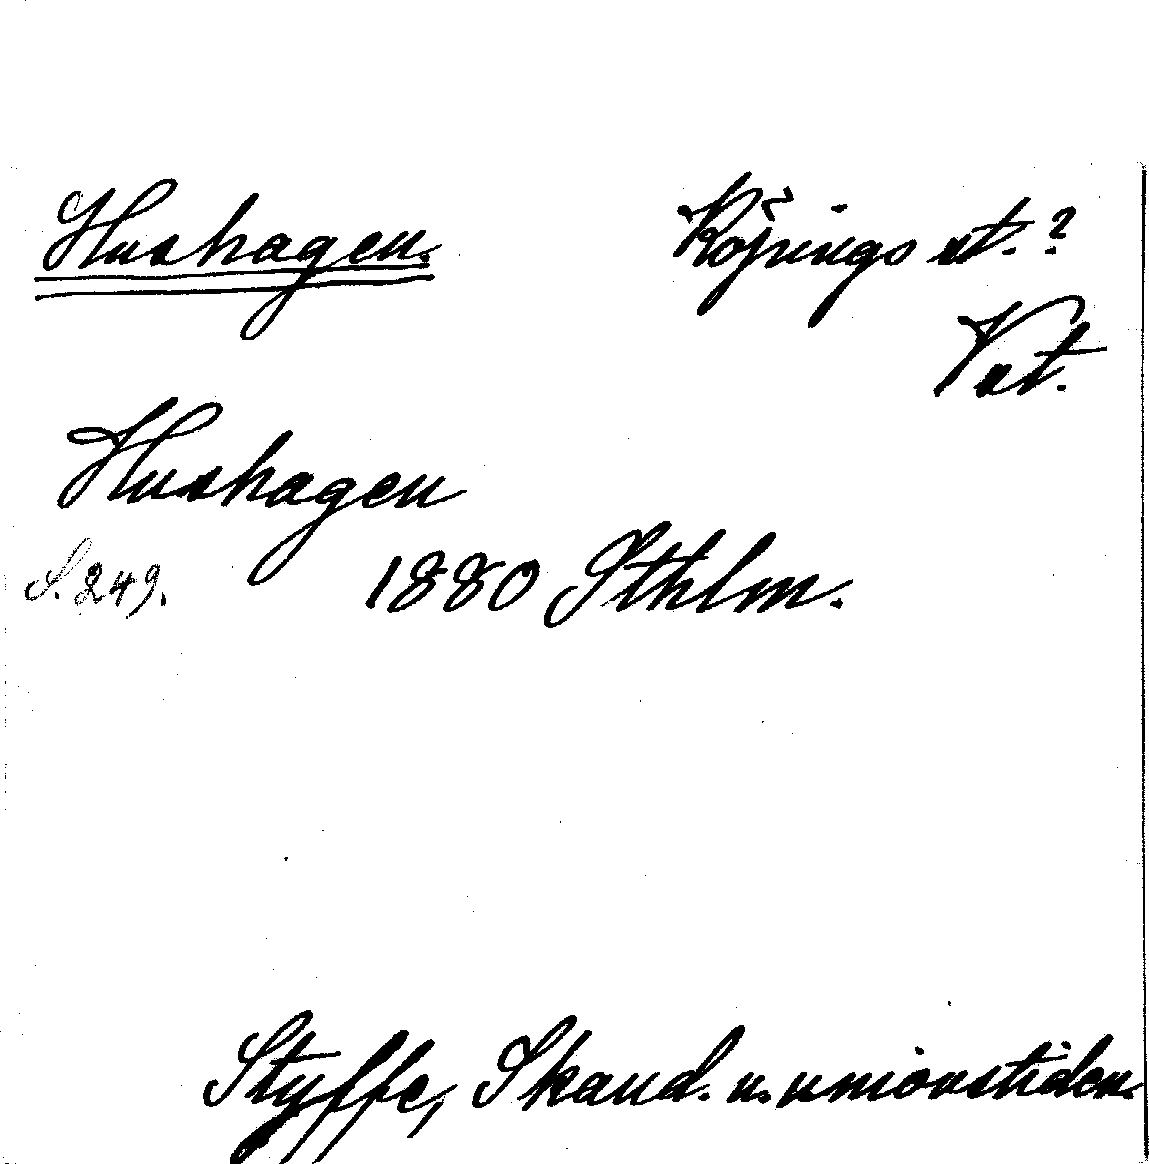 Hushagen. Köpings st.?
Vst.
Hushagen
S. 249. 1880 Sthlm.
Styffe, Skand. u. unionstiden.